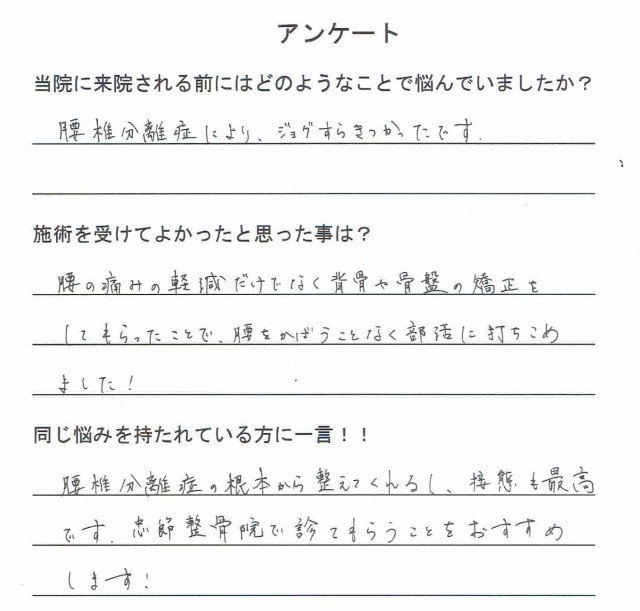 アンケート
当院に来院される前にはどのようなことで悩んでいましたか？
腰椎分離症により、ジョグすらきつかったです.
施術を受けてよかったと思った事は？
腰の痛みの軽減だけでなく背骨や骨盤の矯正を
してもらったことで、腰をかばうことなく部活に打ちこめ
ました！
同じ悩みを持たれている方に一言！！
腰椎分離症の根本から整えてくれるし、接態も最高
です. 忠節整骨院で診てもらうことをおすすめ
します！